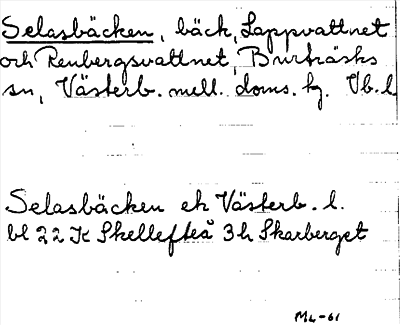 Selasbäcken, bäck, Lappvattnet
och Renbergsvattnet, Burträsks
sn, Västerb. mell. doms. hg. Vb. l.
Selasbäcken ek Västerb. l.
bl 22 K Skellefteå 3 h Skarberget
ML-61